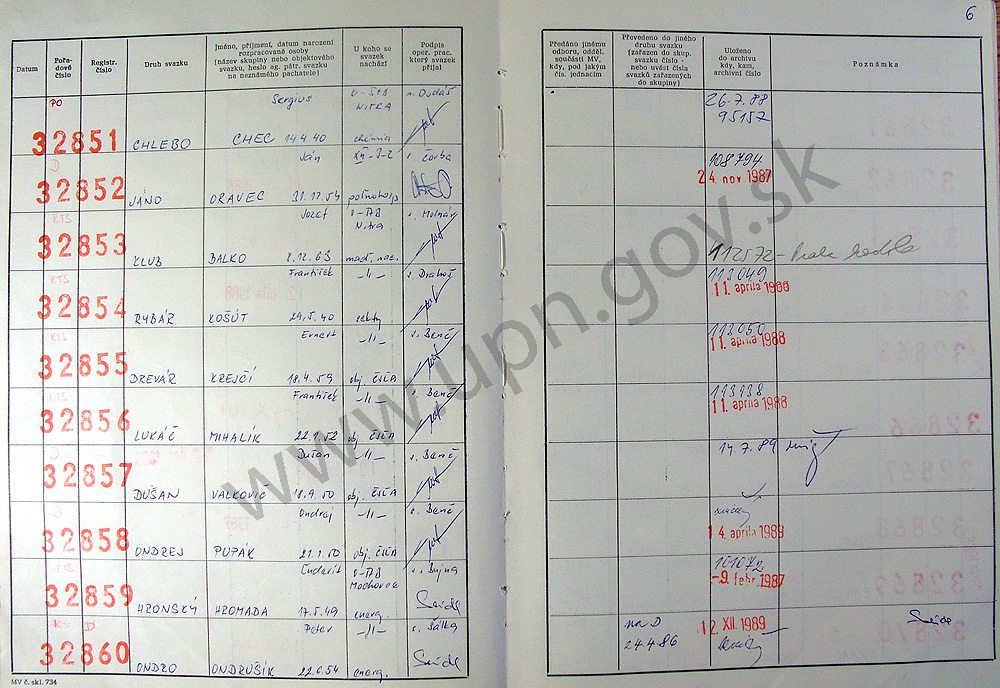 6
Datum
Pořa-
dové
číslo
Registr.
číslo
Druh svazku
Jméno, příjmení, datum narození
rozpracované osoby
(název skupiny nebo objektového
svazku, heslo ag. pátr. svazku
na neznámého pachatele)
U koho se
svazek
nachází
Podpis
oper. prac.
který svazek
přijal
Předáno jinému
odboru, odděl.
součásti MV,
kdy, pod jakým
čís. jednacím
Převedeno do jiného
druhu svazku
(zařazen do skup.
svazku číslo -
nebo uvést čísla
svazků zařazených
do skupiny)
Uloženo
do archivu
kdy, kam,
archivní číslo
Poznámka
PO Sergius s. Dudáš 26.7.88
NITRA 95157
32851 CHLEBO CHEC 14.4.40 chémia
Ján s. Čorba 108794
32852 JÁNO ORAVEC 31.12.54 24. nov 1987
KTS Jozef s. Molnár
Nitra
32853 KLUB BALKO 8.12.63 maď. nac. 112572-
KTS František -II- s. Drahoš 113049
11. apríla 1988
32854 RYBÁR KOŠÚT 29.5.40
KTS Ernest -II- s. Benč 113050
11. apríla 1988
32855 DREVÁR KREJČÍ 18.4.59 obj. ČSĽA
KTS František -II- s. Benč 113938
11. apríla 1988
32856 LUKÁČ MIHALÍK 22.1.52 obj. ČSĽA
D Dušan -II- s. Benč 14.7.89
32857 DUŠAN VALKOVIČ 18.9.50 obj. ČSĽA
D Ondrej -II- s. Benč
14. apríla 1989
32858 ONDREJ PUPÁK 21.1.50 obj. ČSĽA
KTS Ľudovít s. Bujna 101072
Mochovce -9. febr. 1987
32859 HRONSKÝ HROMADA 17.5.49 energ.
D Peter -II- s. Šálka na D 12. XII. 1989
24.4.86
32860 ONDRO ONDRUŠIK 22.6.54 energ.
MV č. skl. 734
www.upn.gov.sk